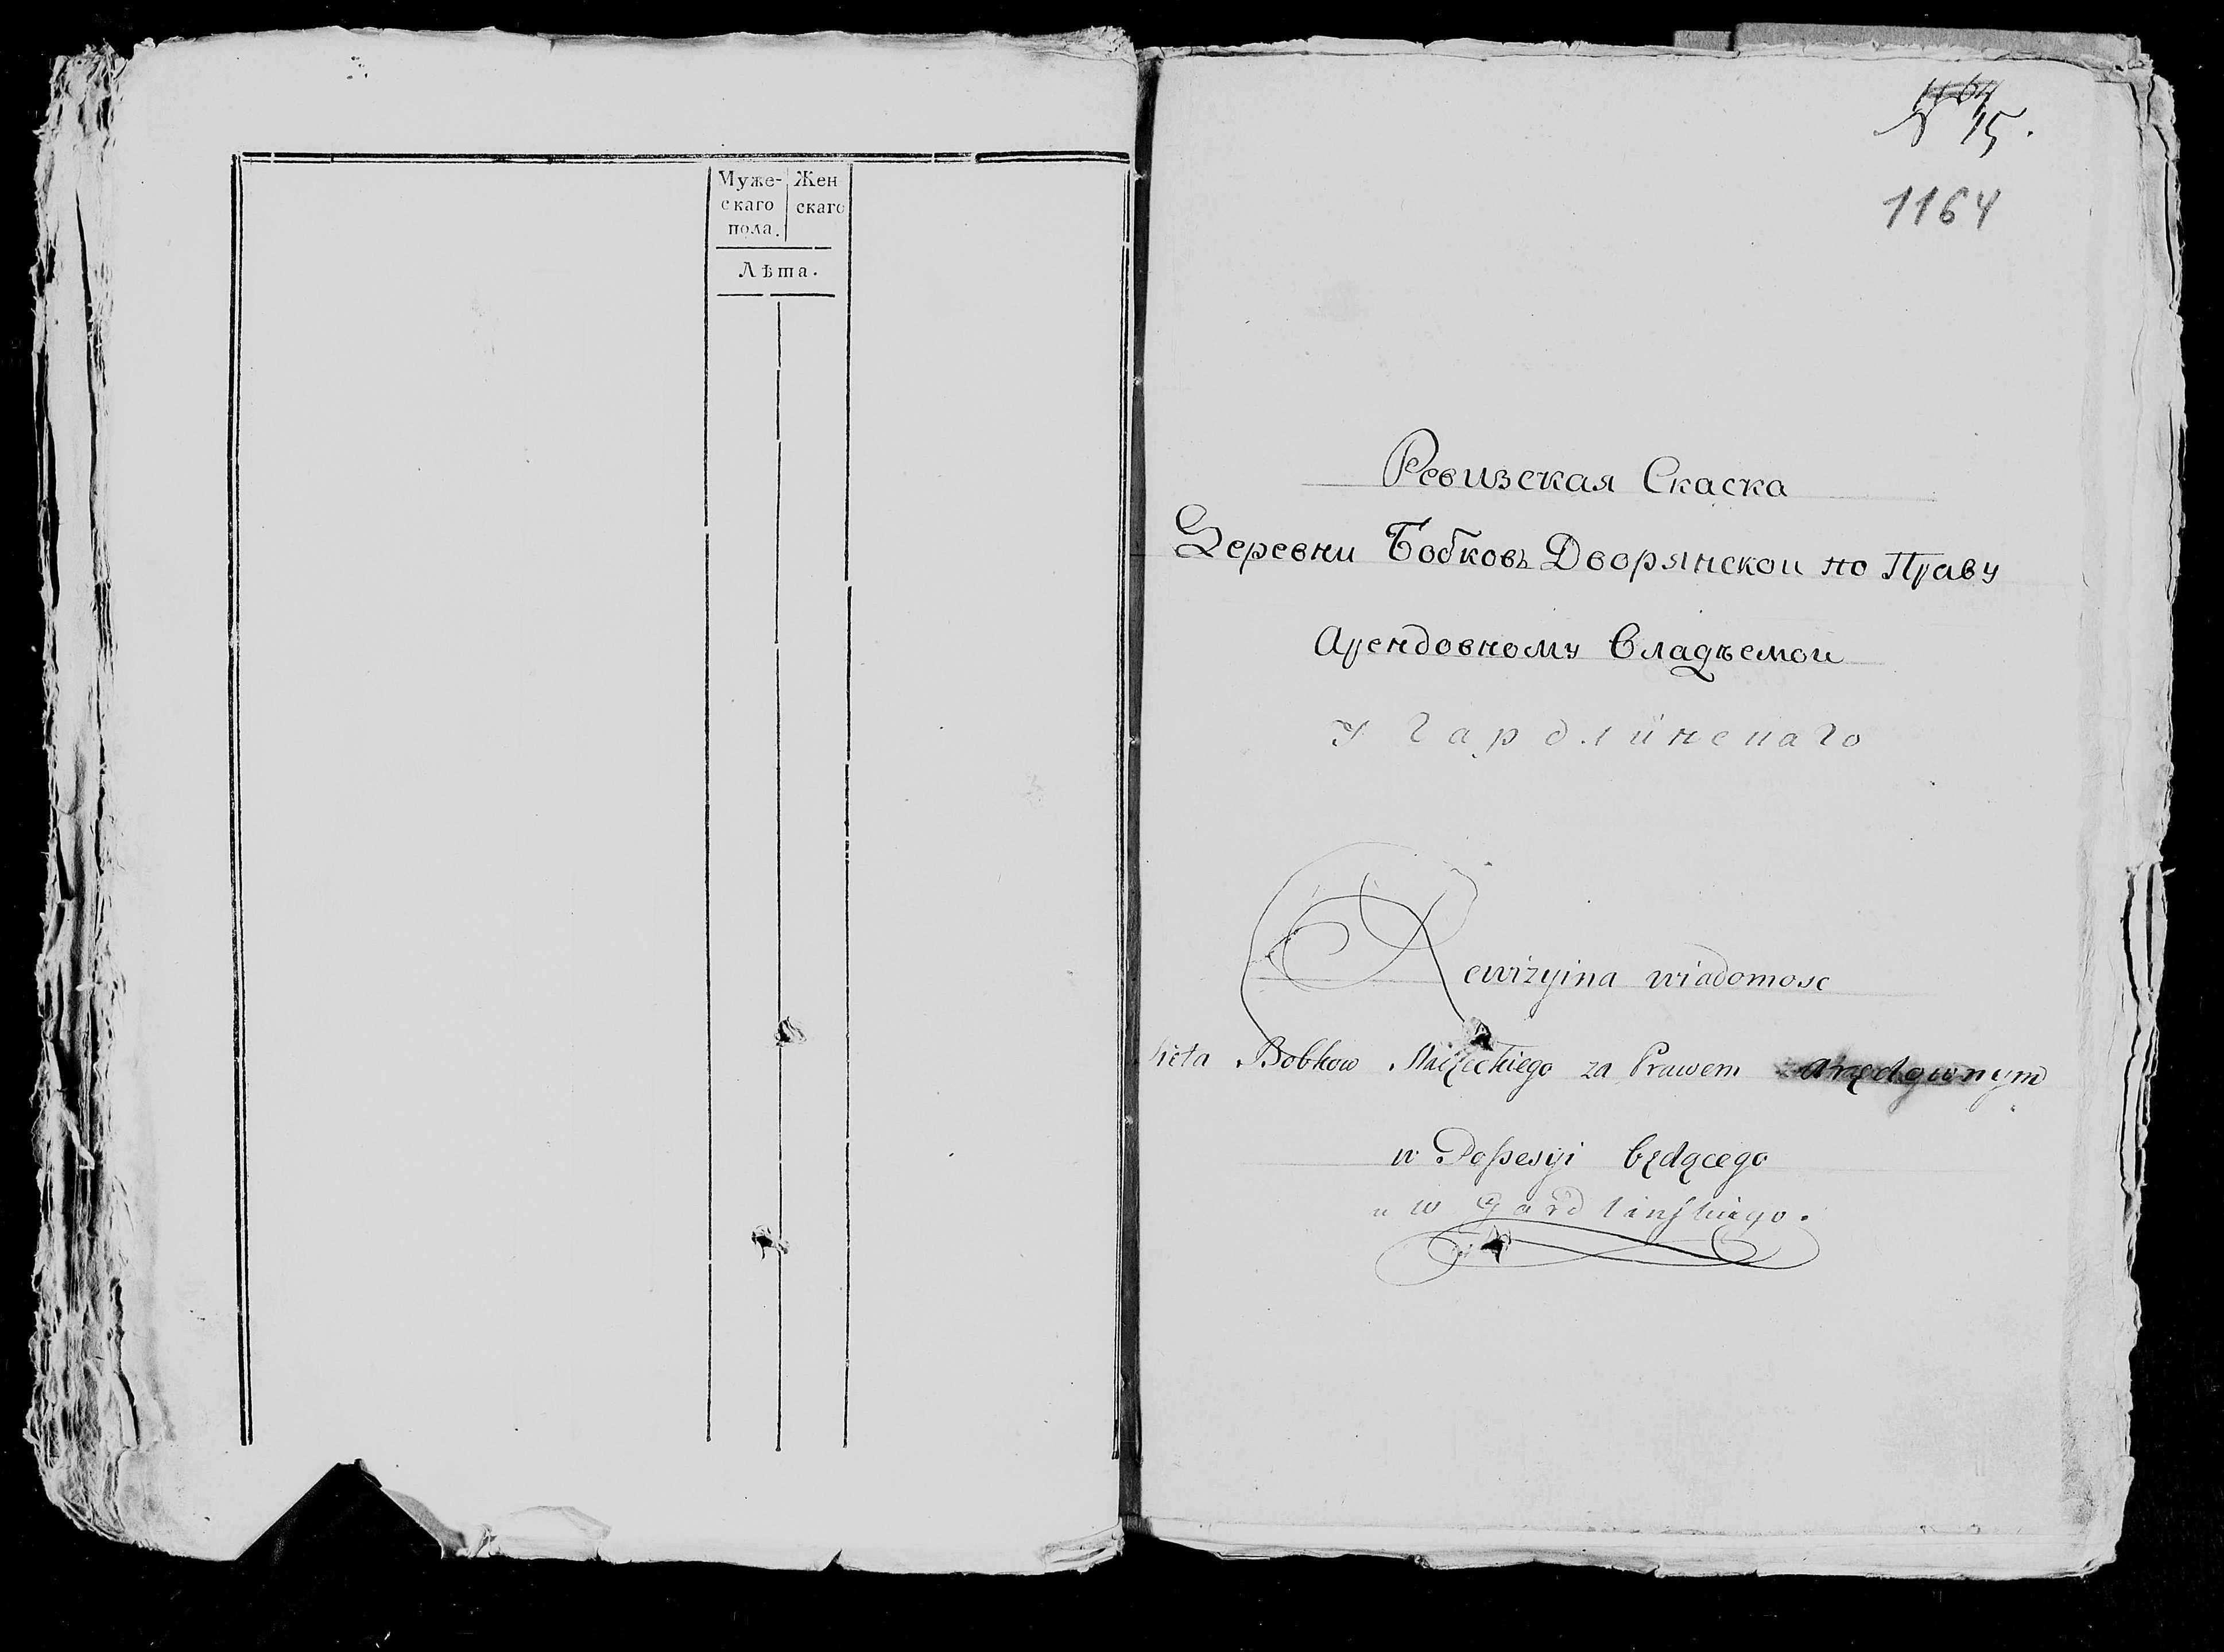 Муже- Жен
скаго скаго
пола.
Лѣта.
№ 15.
1164
Ревизская Скаска
Деревни Бобковъ Дворянскои по Праву
Арендовному Владѣемои
У Гардлинскаго
Rewizyina wiadomosc
Bobkow za Prawem Arędownym
w Possesyi będącego
u W Gardlinskiego.